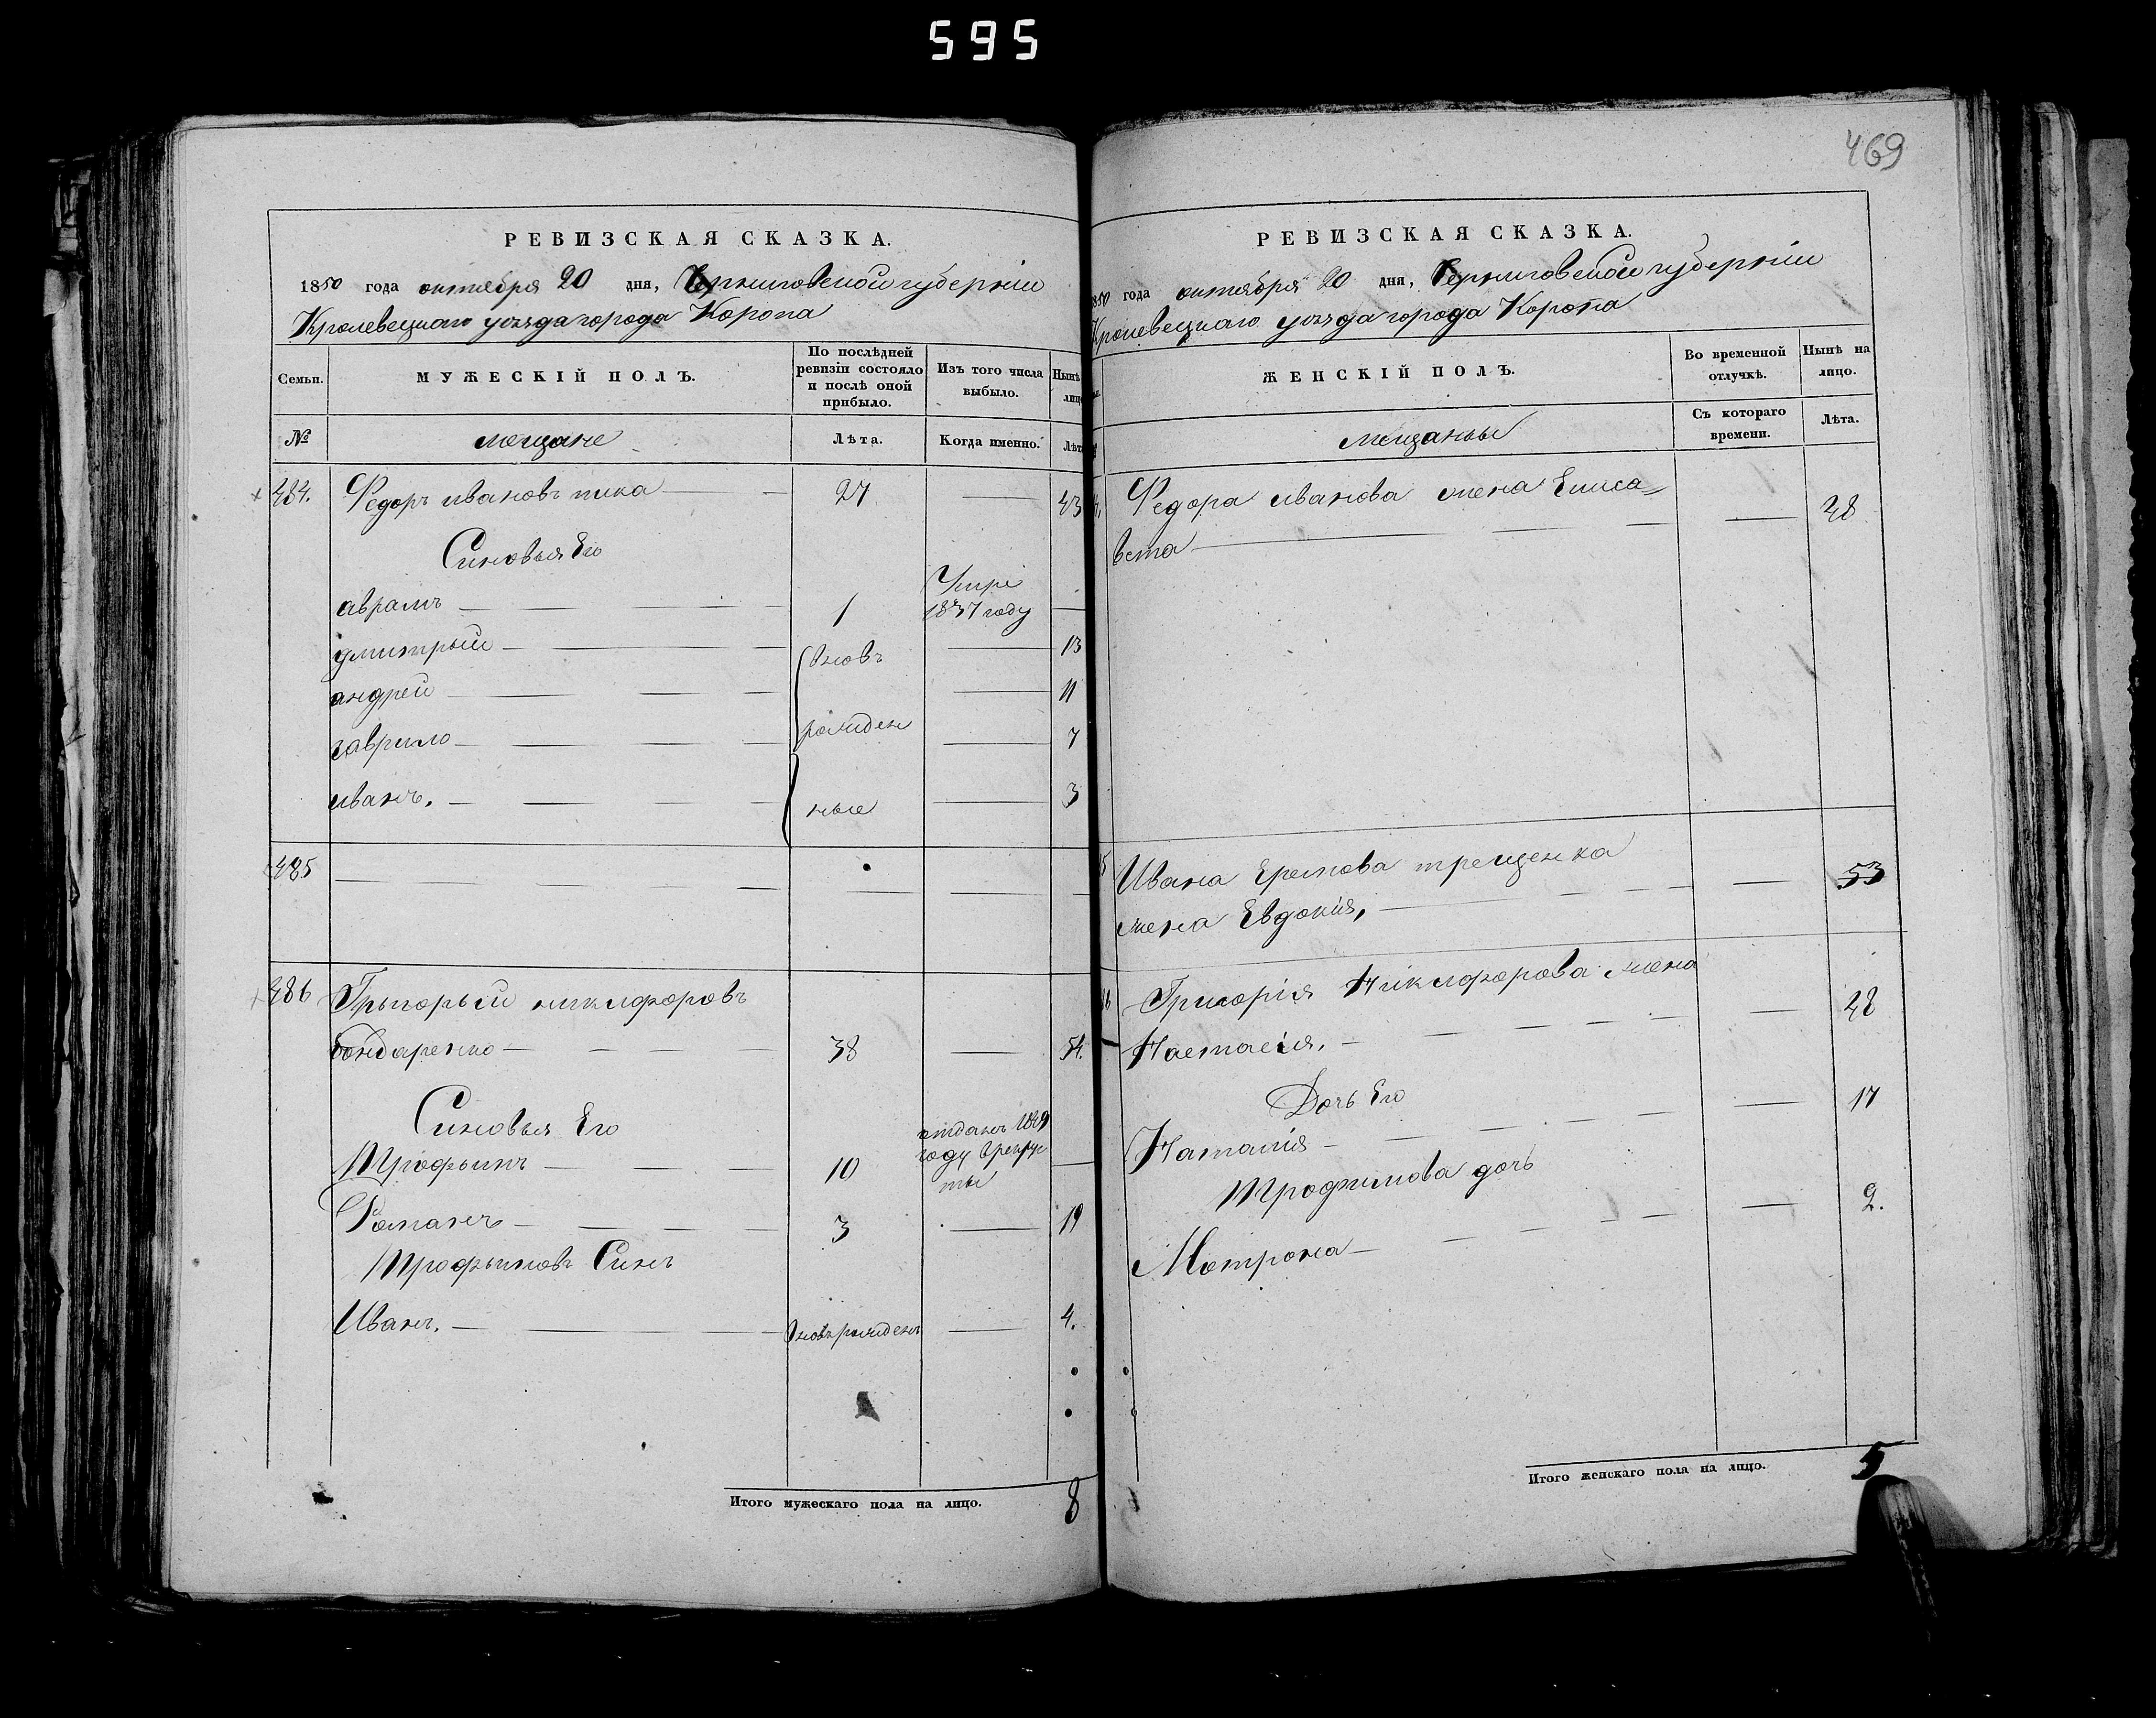 595
469
РЕВИЗСКАЯ СКАЗКА.
1850 года октября 20 дня, Черниговской губернии
Кролевецкаго уезда города Коропа
Семьи.
МУЖЕСКІЙ ПОЛЪ.
По послѣдней ревизіи состояло и послѣ оной прибыло.
Изъ того числа выбыло.
Нынѣ лицо
№
мещане
Лѣта.
Когда именно.
Лѣт
484. Федоръ ивановъ пика — 27 — 43
Синовья Его
аврамъ — 1 Умре 1837 году —
дмитрый — вновь — 13
андрей — — 11
гаврило — рожден — 7
иванъ. — ные — 3
485 — — — —
486 Грыгорый никифоровъ
бондаренко — 38 — 54.
Синовья Его
Трофымъ — 10 отданъ 1849 году в рекруты —
Романъ — 3 — 19
Трофымовъ Синъ
Иванъ. — вновь рожденъ — 4.
Итого мужескаго пола на лицо. 8
РЕВИЗСКАЯ СКАЗКА.
1850 года октября 20 дня, Черниговской губернии
Кролевецкаго уезда города Коропа
ЖЕНСКІЙ ПОЛЪ.
Во временной отлучкѣ.
Нынѣ на лицо.
мещанки
Съ котораго времени.
Лѣта.
Федора иванова жена Елиса=
вета — — 48
Ивана Еремова трещенка
жена Евдокия, — — 53
Григорія Никифорова жена
Настасія. — — 48
Дочь Его
Наталия — — 17
Трофимова дочь
Мотрона — — 2.
Итого женскаго пола на лицо. 5